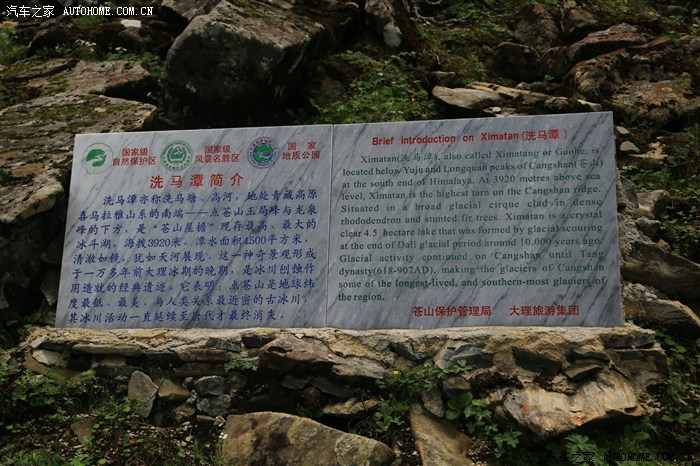 汽车之家 AUTOHOME.COM.CN
汽车之家 AUTOHOME.COM.CN
国家级
自然保护区
国家级
风景名胜区
国家
地质公园
洗马潭简介
洗马潭亦称洗马塘、高河，地处青藏高原
喜马拉雅山系的南端——点苍山玉局峰与龙泉
峰的下方，是“苍山屋檐”现存最高、最大的
冰斗湖。海拔3920米，潭水面积4500平方米，
清澈如镜，犹如天河展现。这一神奇景观形成
于一万多年前大理冰期的晚期，是冰川刨蚀作
用造就的经典遗迹。它表明：点苍山是地球纬
度最低、最美、与人类关系最近密的古冰川，
其冰川活动一直延续至唐代才最终消失。
Brief introduction on Ximatan（洗马潭）
Ximatan(洗马潭), also called Ximatang or Gaohe, is
located below Yuju and Longquan peaks of Cangshan(苍山)
at the south end of Himalaya. At 3920 meters above sea
level, Ximatan is the highest tarn on the Cangshan ridge.
Situated in a broad glacial cirque clad in dense
rhododendron and stunted fir trees. Ximatan is a crystal
clear 4.5 hectare lake that was formed by glacial scouring
at the end of Dali glacial period around 10,000 years ago.
Glacial activity continued on Cangshan until Tang
dynasty(618-907AD), making the glaciers of Cangshan
some of the longest-lived, and southern-most glaciers of
the region.
苍山保护管理局 大理旅游集团
汽车之家 WWW.AUTOHOME.COM.CN